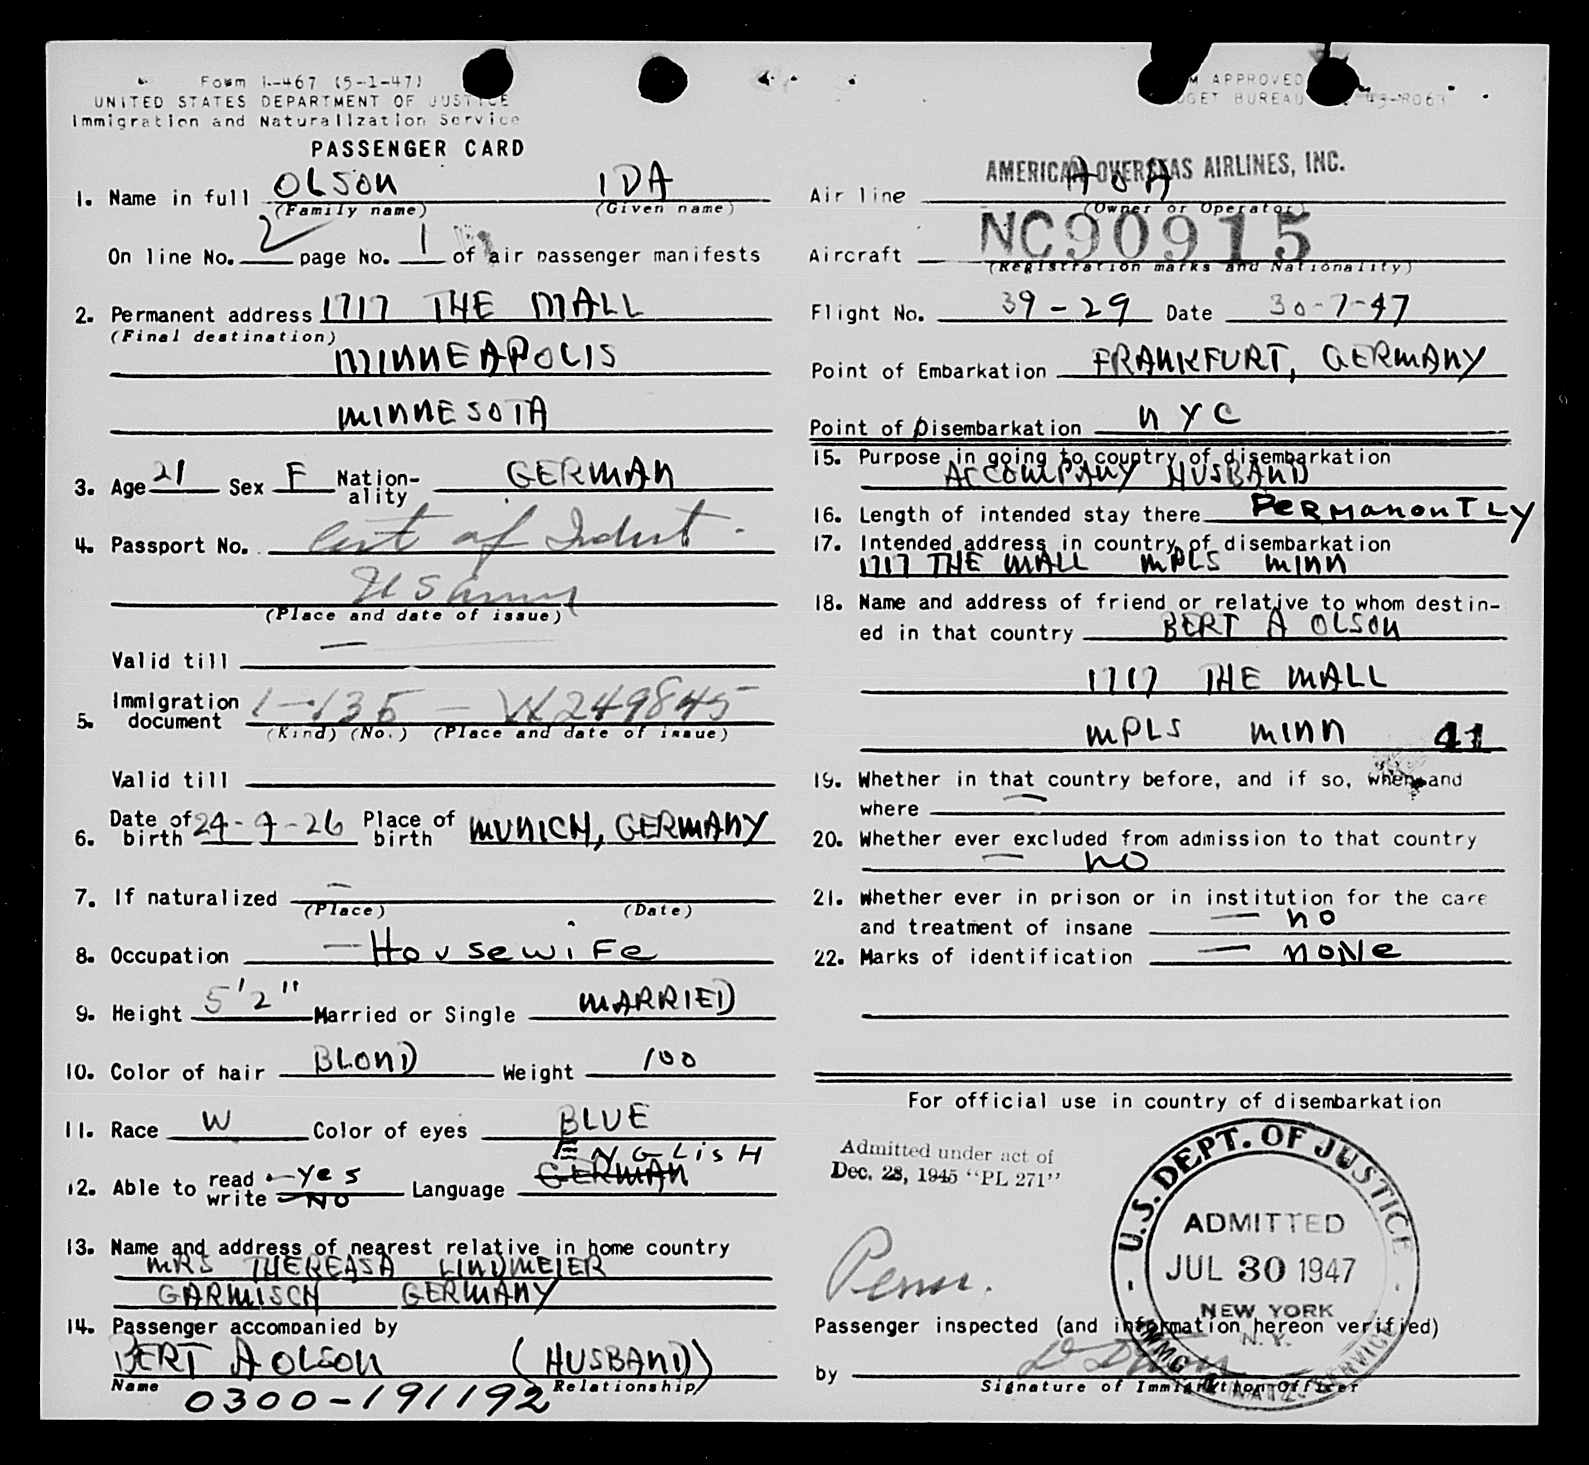 Form I-467 (5-1-47)
UNITED STATES DEPARTMENT OF JUSTICE
Immigration and Naturalization Service
PASSENGER CARD
1. Name in full OLSON IDA
(Family name) (Given name)
2
On line No. page No. 1 of air passenger manifests
2. Permanent address 1717 THE MALL
(Final destination)
MINNEAPOLIS
MINNESOTA
3. Age 21 Sex F Nation-ality GERMAN
4. Passport No. Cert of Ident.
US Army
(Place and date of issue)
Valid till —
5. Immigration document I-135 — W249845
(Kind) (No.) (Place and date of issue)
Valid till
6. Date of birth 24-9-26 Place of birth MUNICH, GERMANY
7. If naturalized —
(Place) (Date)
8. Occupation — HOUSEWIFE
9. Height 5'2" Married or Single MARRIED
10. Color of hair BLOND Weight 100
11. Race W Color of eyes BLUE
ENGLISH
12. Able to read - YES write - NO Language GERMAN
13. Name and address of nearest relative in home country
MRS THEREASA LINDMEIER
GARMISCH GERMANY
14. Passenger accompanied by
BERT A OLSON (HUSBAND)
Name Relationship
0300-191192
FORM APPROVED
BUDGET BUREAU
AMERICAN OVERSEAS AIRLINES, INC.
Air line AOA
(Owner or Operator)
Aircraft NC90915
(Registration marks and Nationality)
Flight No. 39-29 Date 30-7-47
Point of Embarkation FRANKFURT, GERMANY
Point of Disembarkation NYC
15. Purpose in going to country of disembarkation
ACCOMPANY HUSBAND
16. Length of intended stay there PERMANONTLY
17. Intended address in country of disembarkation
1717 THE MALL MPLS MINN
18. Name and address of friend or relative to whom destin-
ed in that country BERT A OLSON
1717 THE MALL
MPLS MINN 41
19. Whether in that country before, and if so, when and
where —
20. Whether ever excluded from admission to that country
— NO
21. Whether ever in prison or in institution for the care
and treatment of insane — NO
22. Marks of identification — NONE
For official use in country of disembarkation
Admitted under act of
Dec. 28, 1945 "PL 271"
Perm.
U.S. DEPT. OF JUSTICE
ADMITTED
JUL 30 1947
NEW YORK
N.Y.
IMMIG. & NATZ. SERVICE
Passenger inspected (and information hereon verified)
by
Signature of Immigration Officer